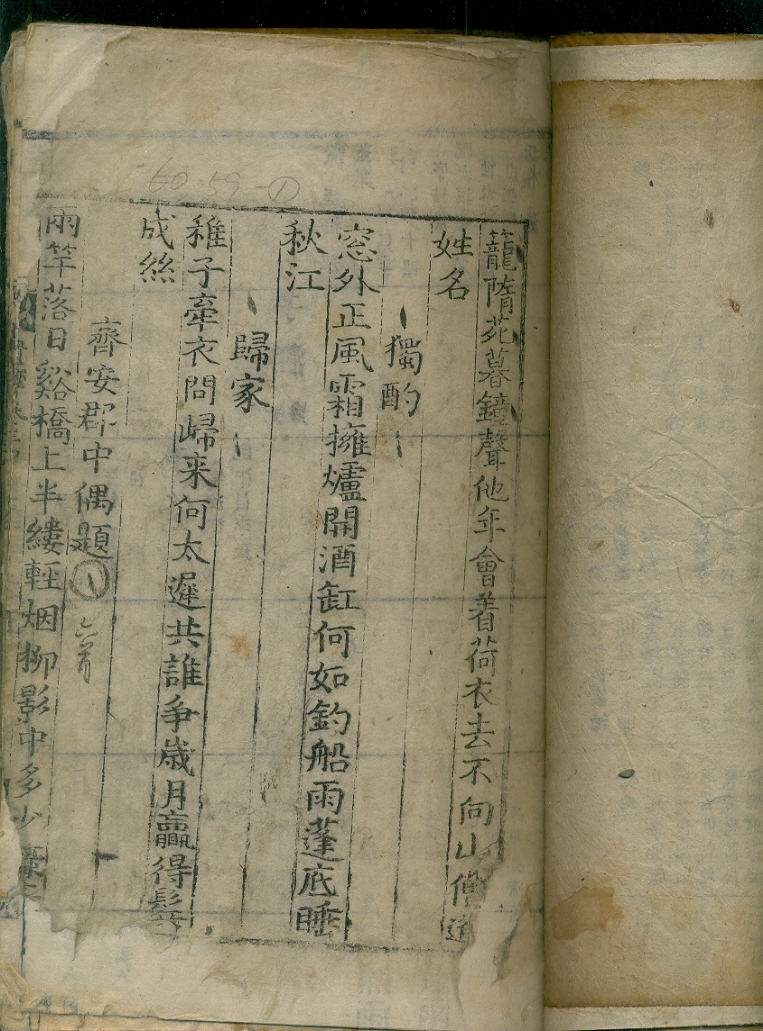 籠隋苑暮鐘聲他年會着荷衣去不向山僧道
姓名
獨酌
窓外正風霜擁爐開酒缸何如釣船雨蓬底睡
秋江
歸家
稚子牽衣問歸来何太遲共誰爭歲月贏得鬂
成絲
齊安郡中偶題
兩竿落日谿橋上半縷輕烟柳影中多少
60 59 ①